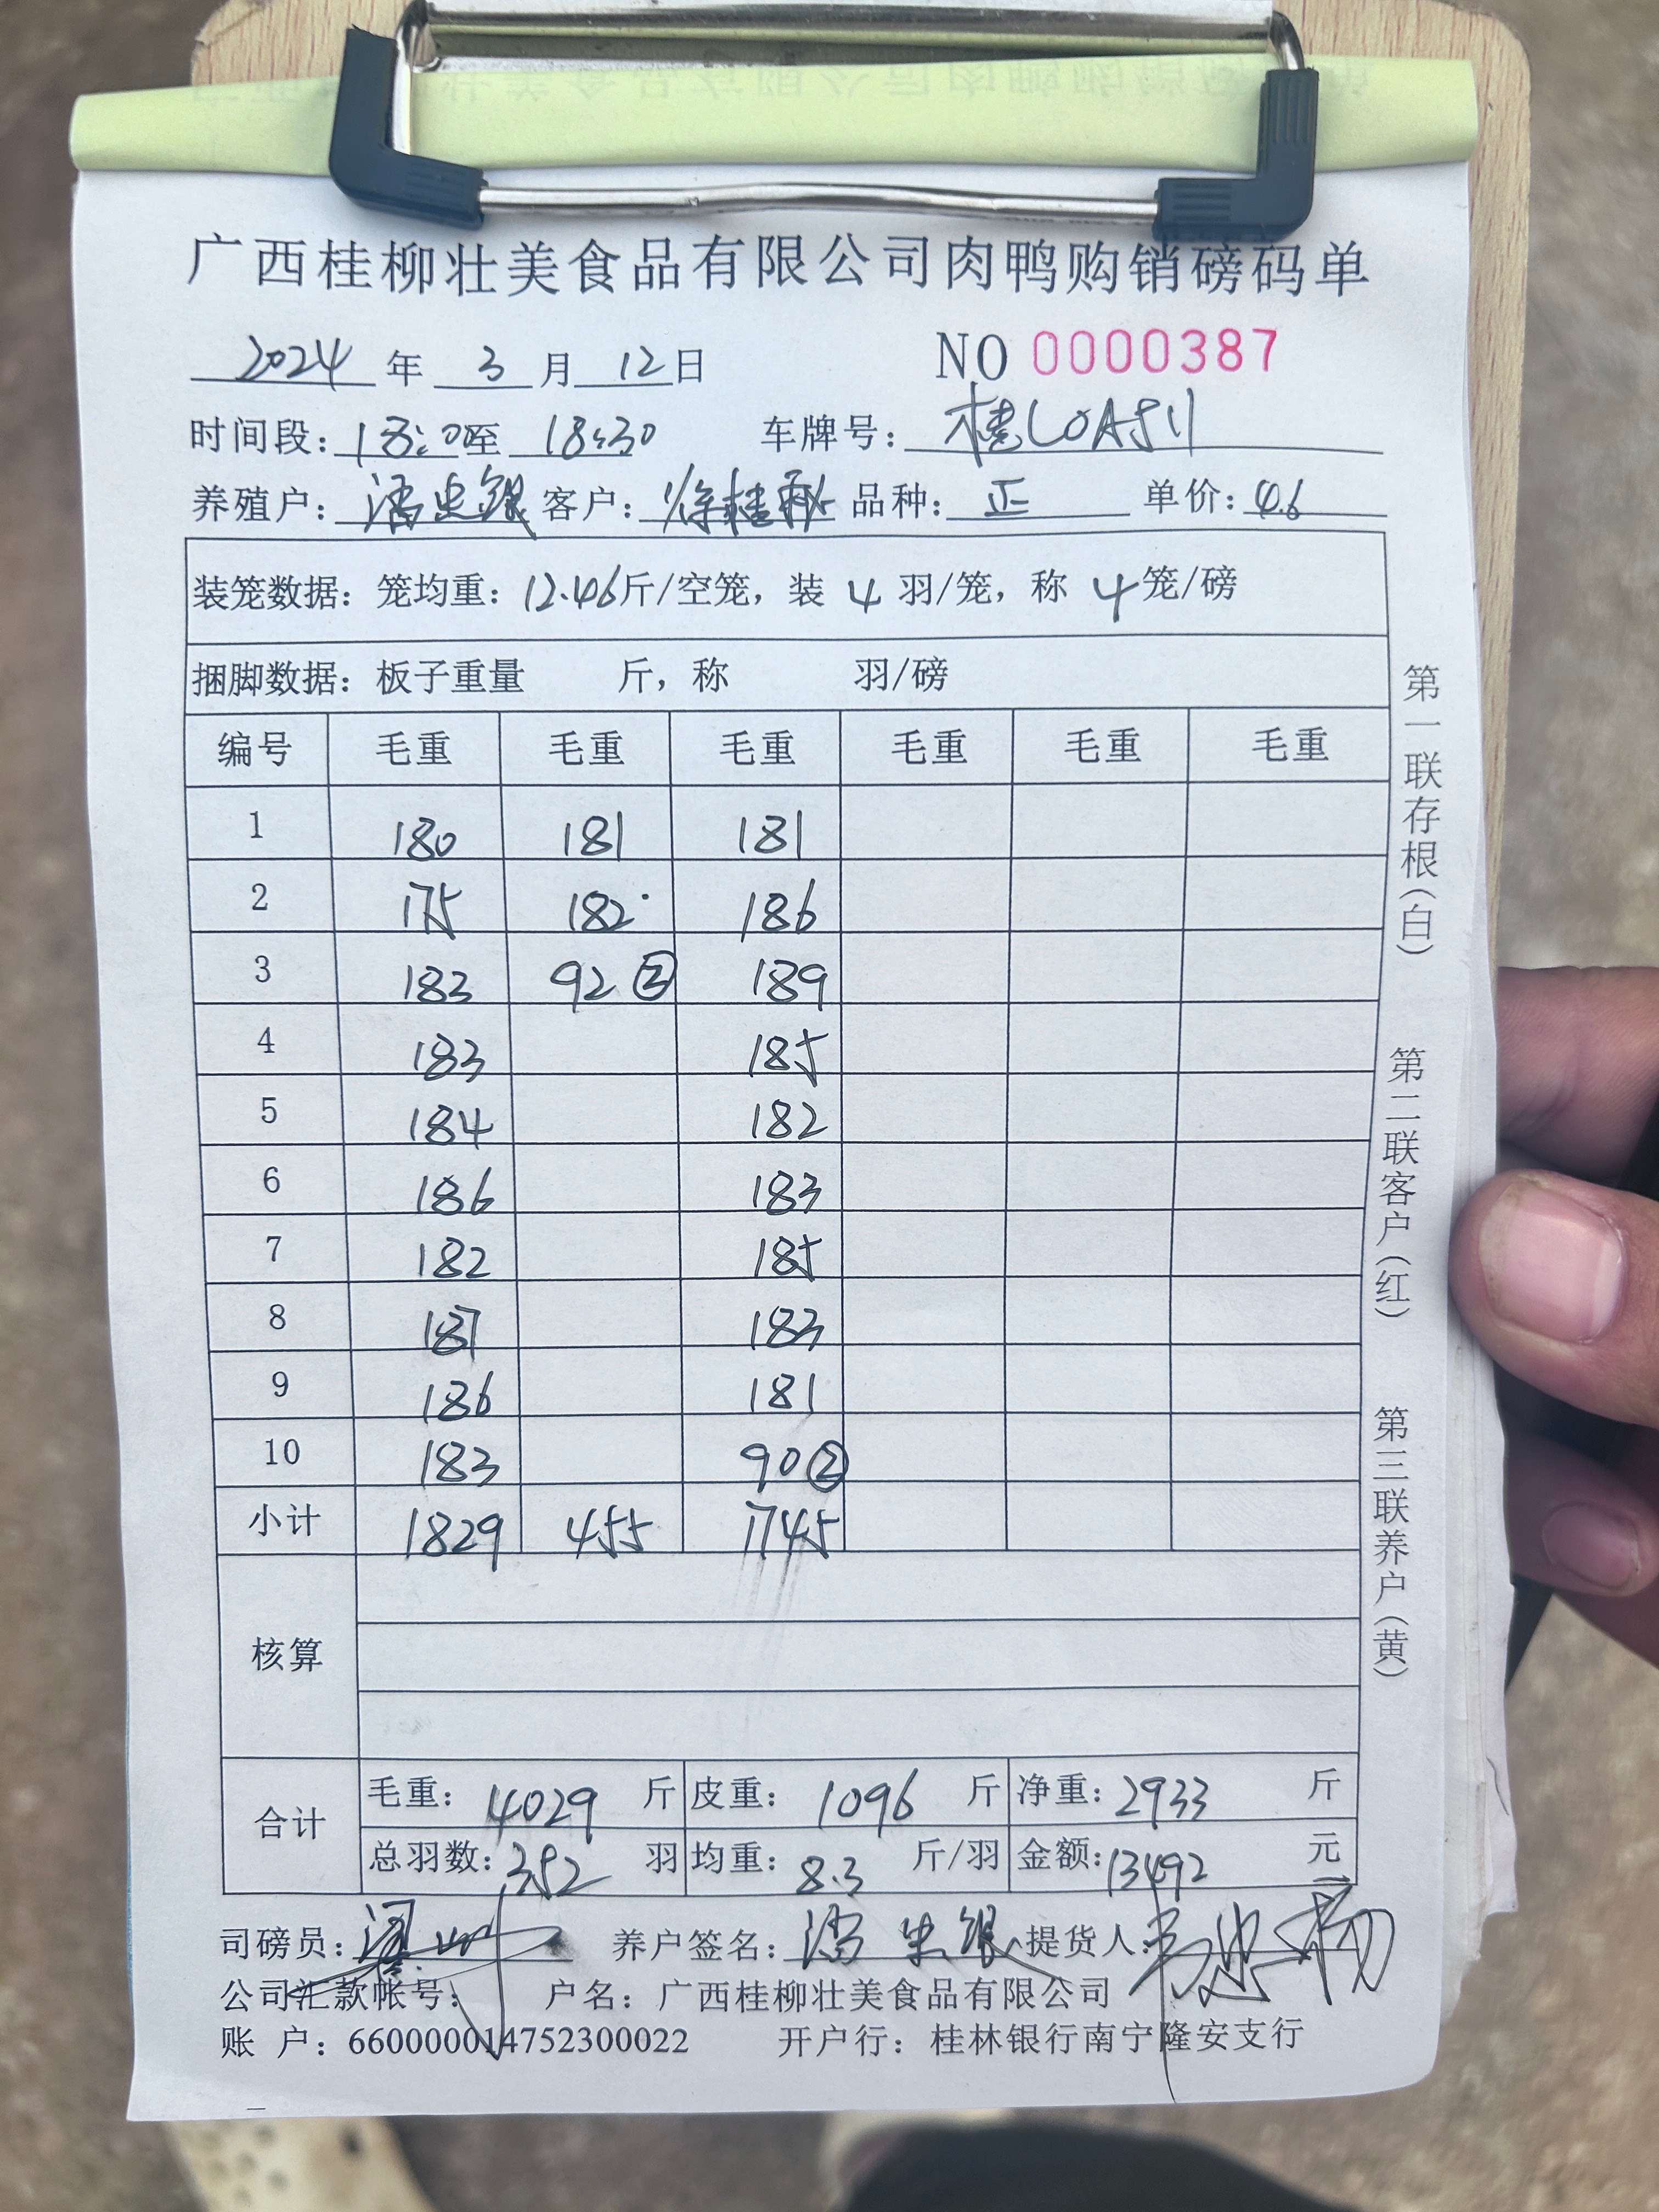 广西桂柳壮美食品有限公司肉鸭购销磅码单
2024 年 3 月 12 日 NO 0000387
时间段: 18:00 至 18:30 车牌号: 桂L0A511
养殖户: 潘忠银 客户: 徐桂秋 品种: 正 单价: 4.6
装笼数据: 笼均重: 12.46 斤/空笼, 装 4 羽/笼, 称 4 笼/磅
捆脚数据: 板子重量 斤, 称 羽/磅
编号 毛重 毛重 毛重 毛重 毛重 毛重
1 180 181 181
2 175 182 186
3 183 92 ② 189
4 183 185
5 184 182
6 186 183
7 182 185
8 187 183
9 186 181
10 183 90 ②
小计 1829 455 1745
核算
合计 毛重: 4029 斤 皮重: 1096 斤 净重: 2933 斤
总羽数: 352 羽 均重: 8.3 斤/羽 金额: 13492 元
司磅员: 养户签名: 潘忠银 提货人:
公司汇款帐号: 户名: 广西桂柳壮美食品有限公司
账 户: 660000014752300022 开户行: 桂林银行南宁隆安支行
第一联存根(白)
第二联客户(红)
第三联养户(黄)